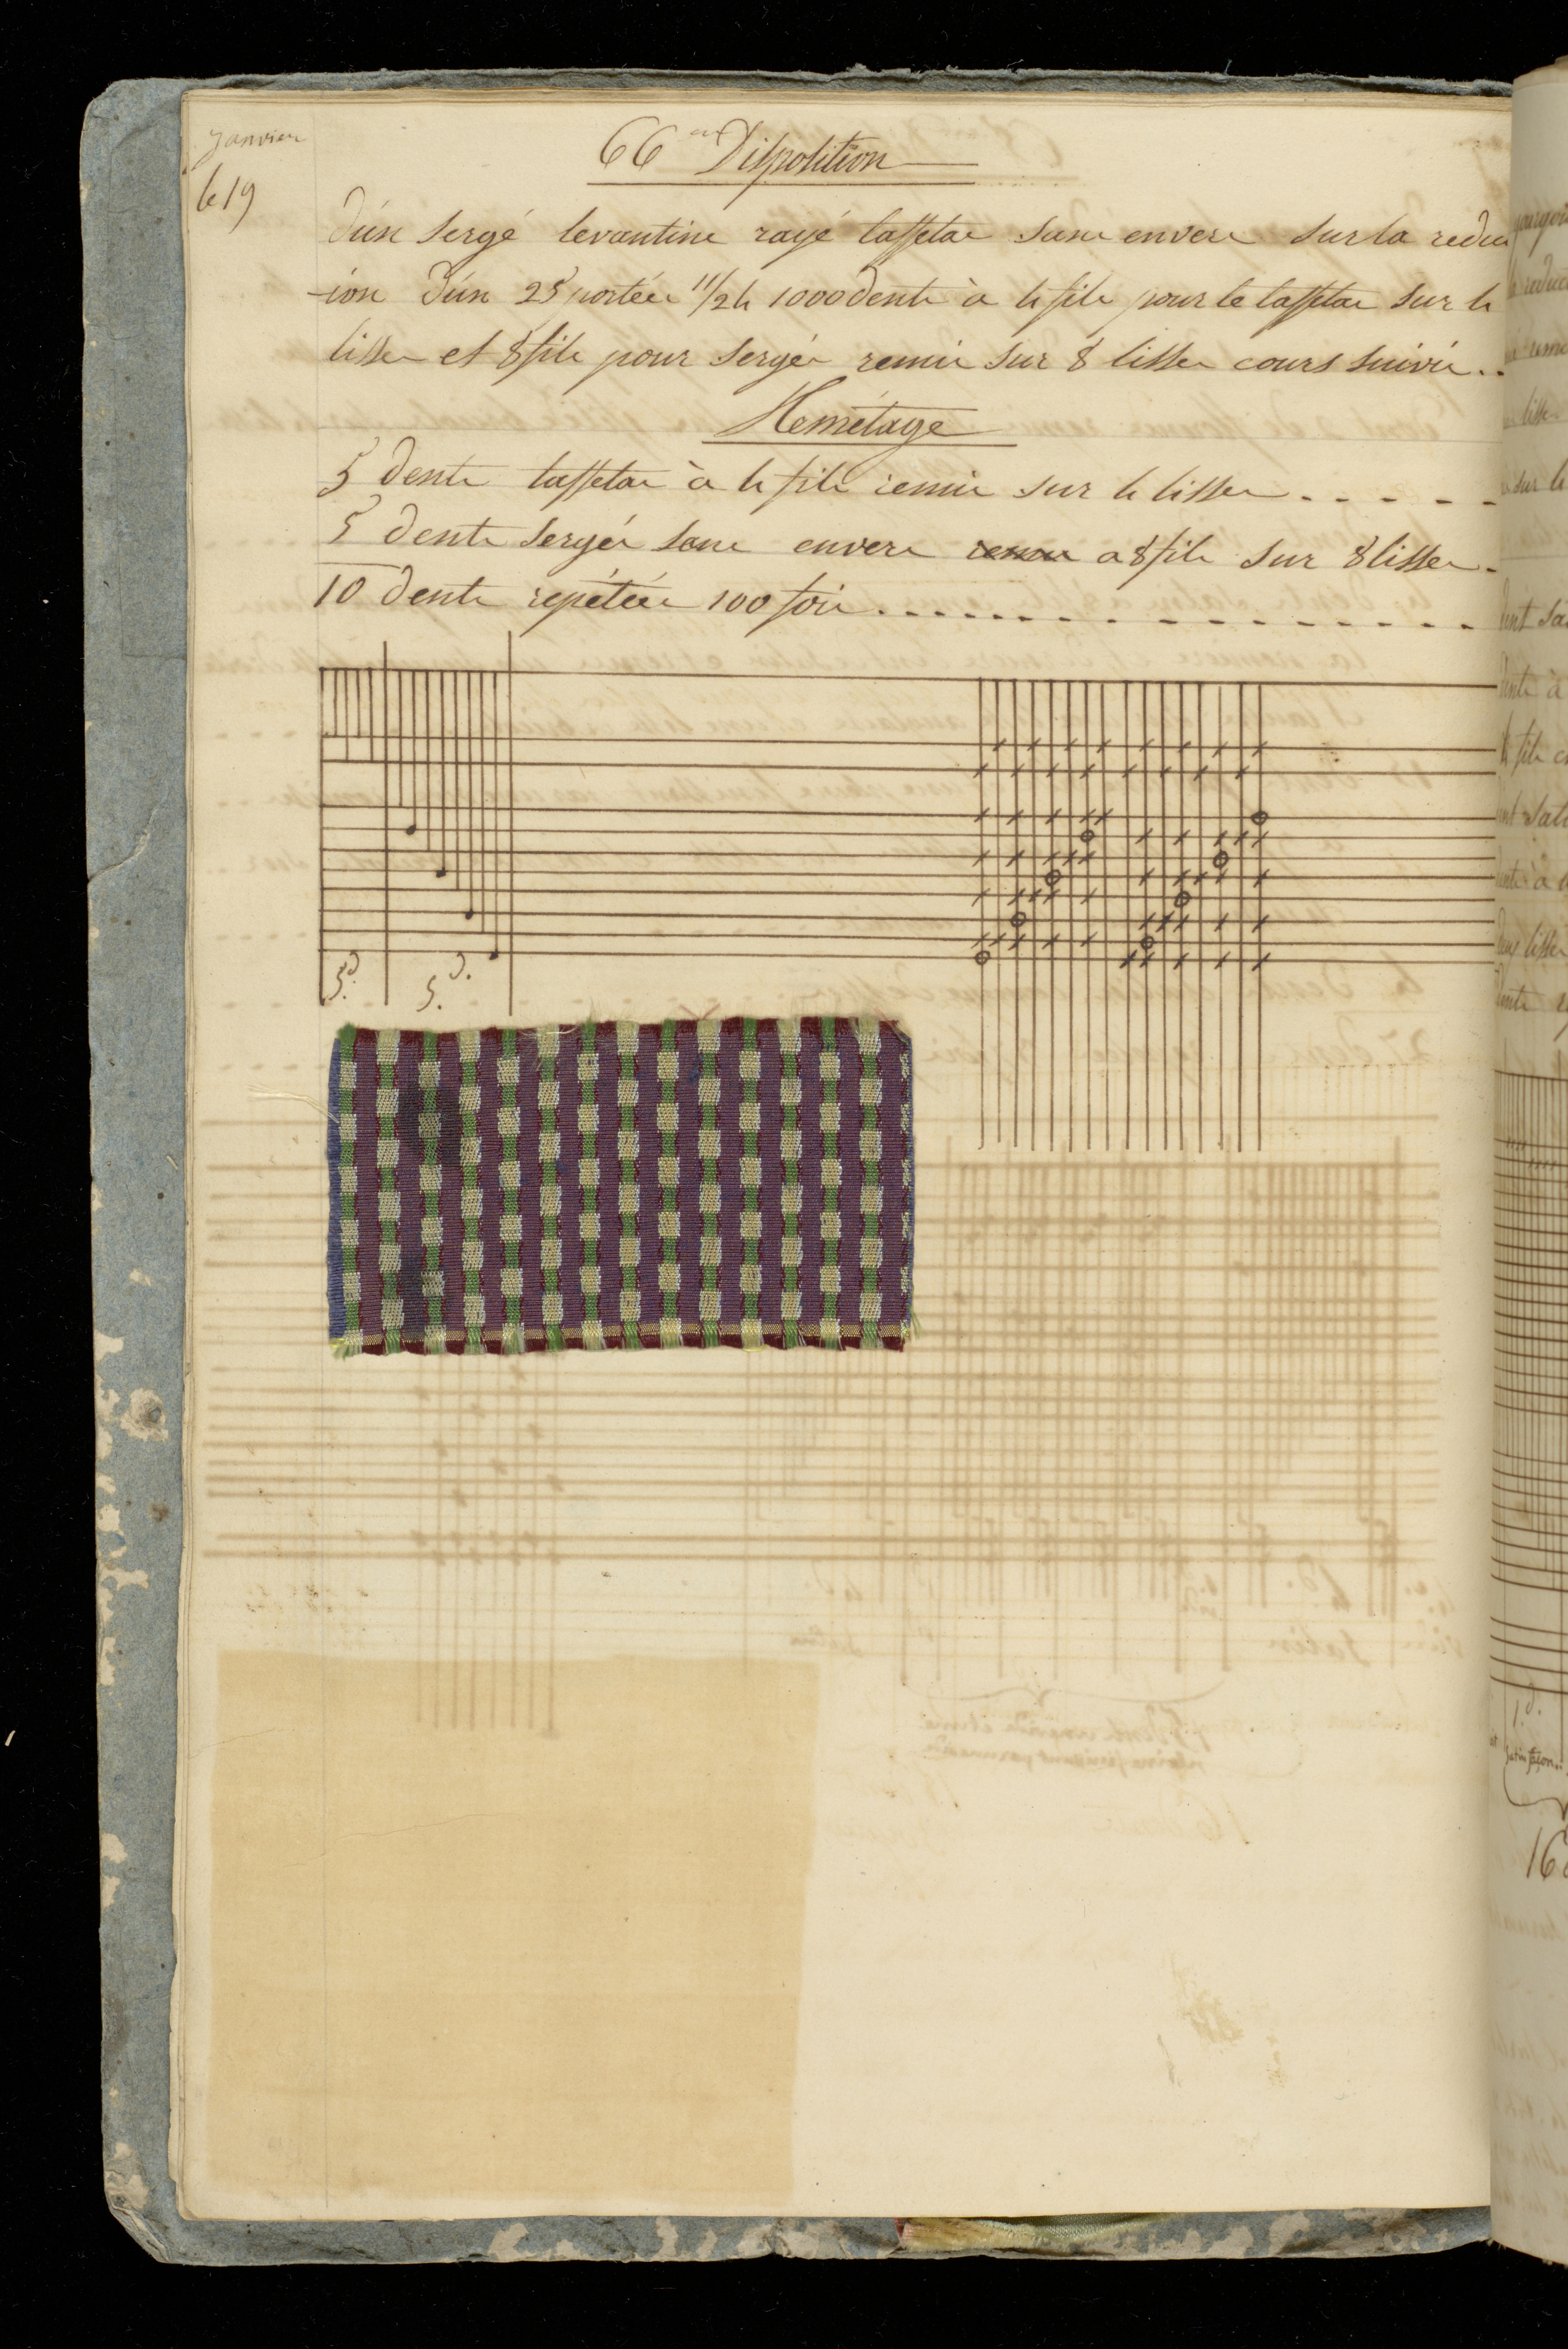 janvier
le 19
66 em Disposition
d'un sergé levantine rayé taffetas sans envers sur la reduc
-ion d'un 25 portées 11/24 1000 dents à 4 fils pour le taffetas sur 4
lisses et 8 fils pour sergés remis sur 8 lisses cours suivis..
Remétage
5 dents taffetas à 4 fils remis sur 4 lisses
5 dents sergés sans envers a 8 fils sur 8 lisses
10 dents repétées 100 fois
5.d
5.d.